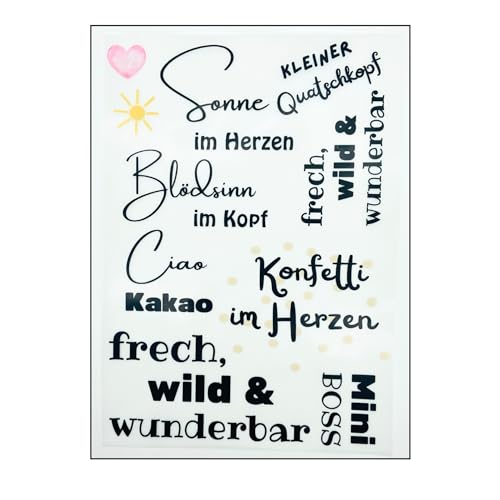 Sonne
im Herzen
KLEINER
Quatschkopf
frech,
wild &
wunderbar
Blödsinn
im Kopf
Ciao
Kakao
Konfetti
im Herzen
frech,
wild &
wunderbar
Mini
BOSS